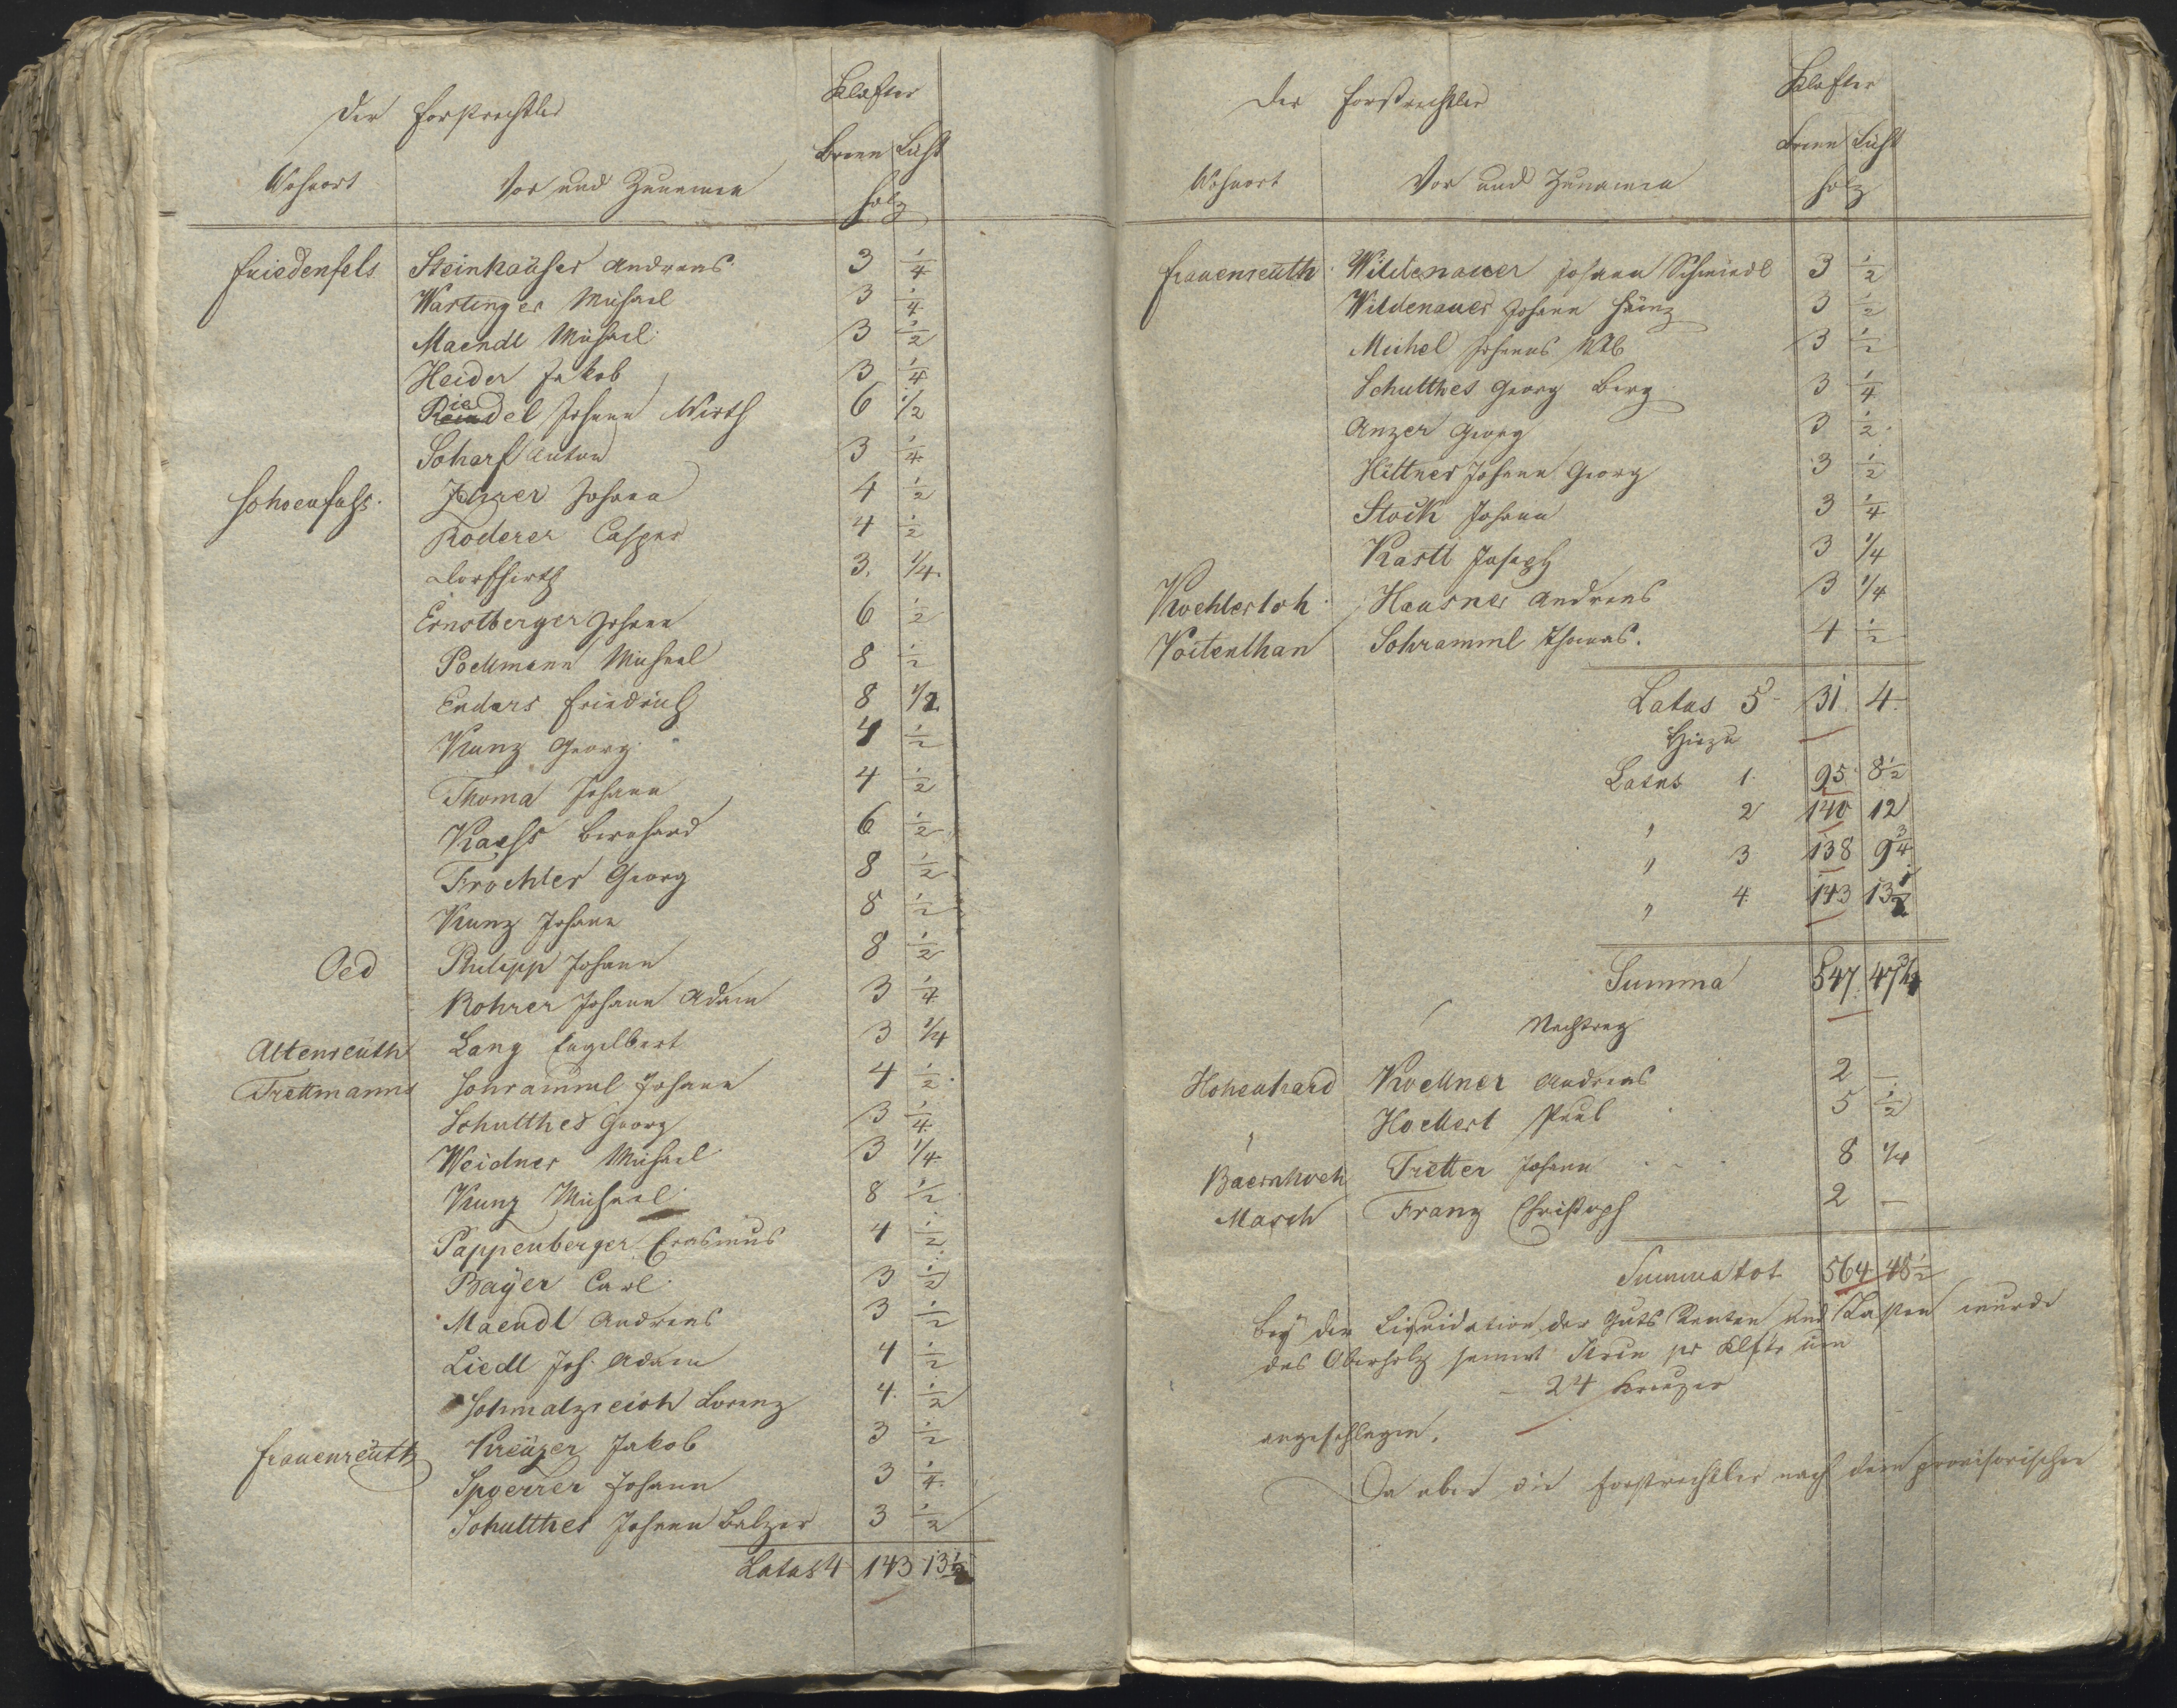 Der Forstrechtler
Klafter
Wohnort
Vor und Zunamen
Brenn Licht
holz
Friedenfels Steinhaüser Andreas 3 1/4
Wartinger Michael 3 1/4
Maendl Michael 3 1/2
Heider Jakob 3 1/4
Riedel Johann Wirth 6 1/2
Scharf Anton 3 1/4
Schoenfuß Johann 4 1/2
Roderer Caspar 4 1/2
Dorfhirth 3. 1/4
Ernstberger Johann 6 1/2
Poellmann Michael 8 1/2
Enders Friedrich 8 1/2
Kunz Georg 4 1/2
Thoma Johann 4 1/2
Kaess Bernhard 6 1/2
Froehler Georg 8 1/2
Kunz Johann 8 1/2
Oed Philipp Johann 8 1/2
Rohrer Johann Adam 3 1/4
Altenreüth Lang Engelbert 3 1/4
Trettmanns Schramml Johann 4 1/2
Schulthes Georg 3 1/4
Weidner Michael 3 1/4
Kunz Michael 8 1/2
Pappenberger Erasmus 4 1/2
Bayer Carl 3 1/2
Maendl Andreas 3 1/2
Liedl Joh. Adam 4 1/2
Schmalzreich Lorenz 4 1/2
Frauenreüth Kreüzer Jakob 3 1/2
Spoerrer Johann 3 1/4
Schulthes Johann Balzer 3 1/2
Latus 4 143 13 1/2
Der Forstrechtler
Klafter
Wohnort
Vor und Zunamen
Brenn Licht
holz
Frauenreüth Wildenauer Johann Schmiedl 3 1/2
Wildenauer Johann Heinz 3 1/2
Michel Johann 3 1/2
Schulthes Georg Berg 3 1/4
Anzer Georg 3 1/2
Hittner Johann Georg 3 1/2
Stock Johann 3 1/4
Kastl Joseph 3 1/4
Koehlerloh Hausner Andreas 3 1/4
Voitenthan Schramml Thomas. 4 1/2
Latus 5 31 4
Hiezu
Latus 1 95 8 1/2
" 2 140 12
" 3 138 9 3/4
" 4 143 13 1/2
Summa 547 47 3/4
Nachtrag
Hohenhard Koellner Andreas 2 —
" Hoellerl Paul 5 1/2
Baernhoeh Tretter Johann 8 1/4
Masch Franz Christoph 2 —
Summa tot 564 48 1/2
Bey der Liquidation der Guts Renten und Lasten wurde
das Oberholz sammt pr Klftr um
— 24 Kreuzer
angeschlagen.
Da aber die Forstrechtler nach dem provisorischen